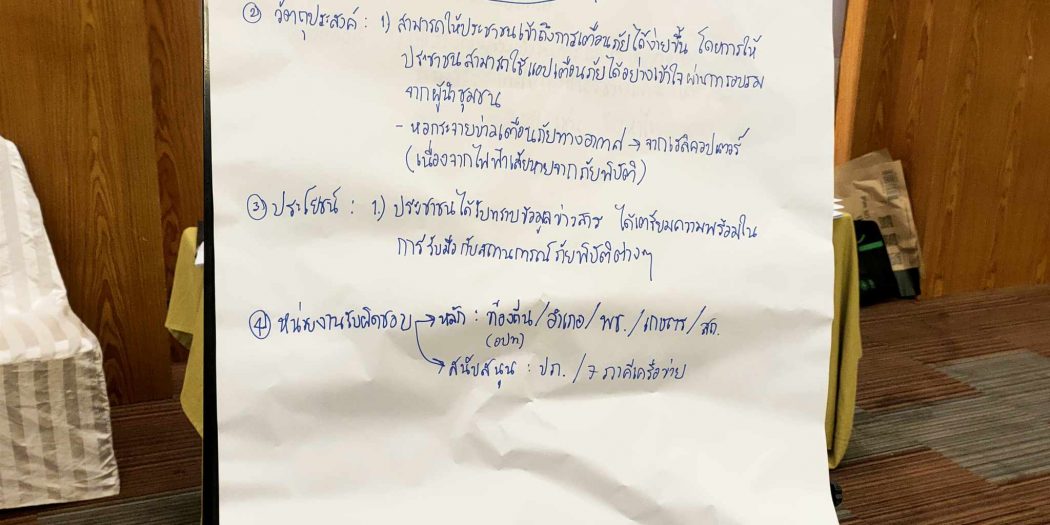 ② วัตถุประสงค์ : 1) สามารถให้ประชาชนเข้าถึงการเตือนภัยได้ง่ายขึ้น โดยการให้
ประชาชนสามารถใช้แอปเตือนภัยได้อย่างเข้าใจ ผ่านการอบรม
จากผู้นำชุมชน
- หอกระจายข่าวเตือนภัยทางอากาศ → จากเฮลิคอปเตอร์
(เนื่องจากไฟฟ้าเสียหายจากภัยพิบัติ)
③ ประโยชน์ : 1.) ประชาชนได้รับทราบข้อมูลข่าวสาร ได้เตรียมความพร้อมใน
การรับมือกับสถานการณ์ภัยพิบัติต่างๆ
④ หน่วยงานรับผิดชอบ → หลัก : ท้องถิ่น/อำเภอ/พช./เกษตร/สถ.
(อปท)
→ สนับสนุน : ปภ. / 7 ภาคีเครือข่าย